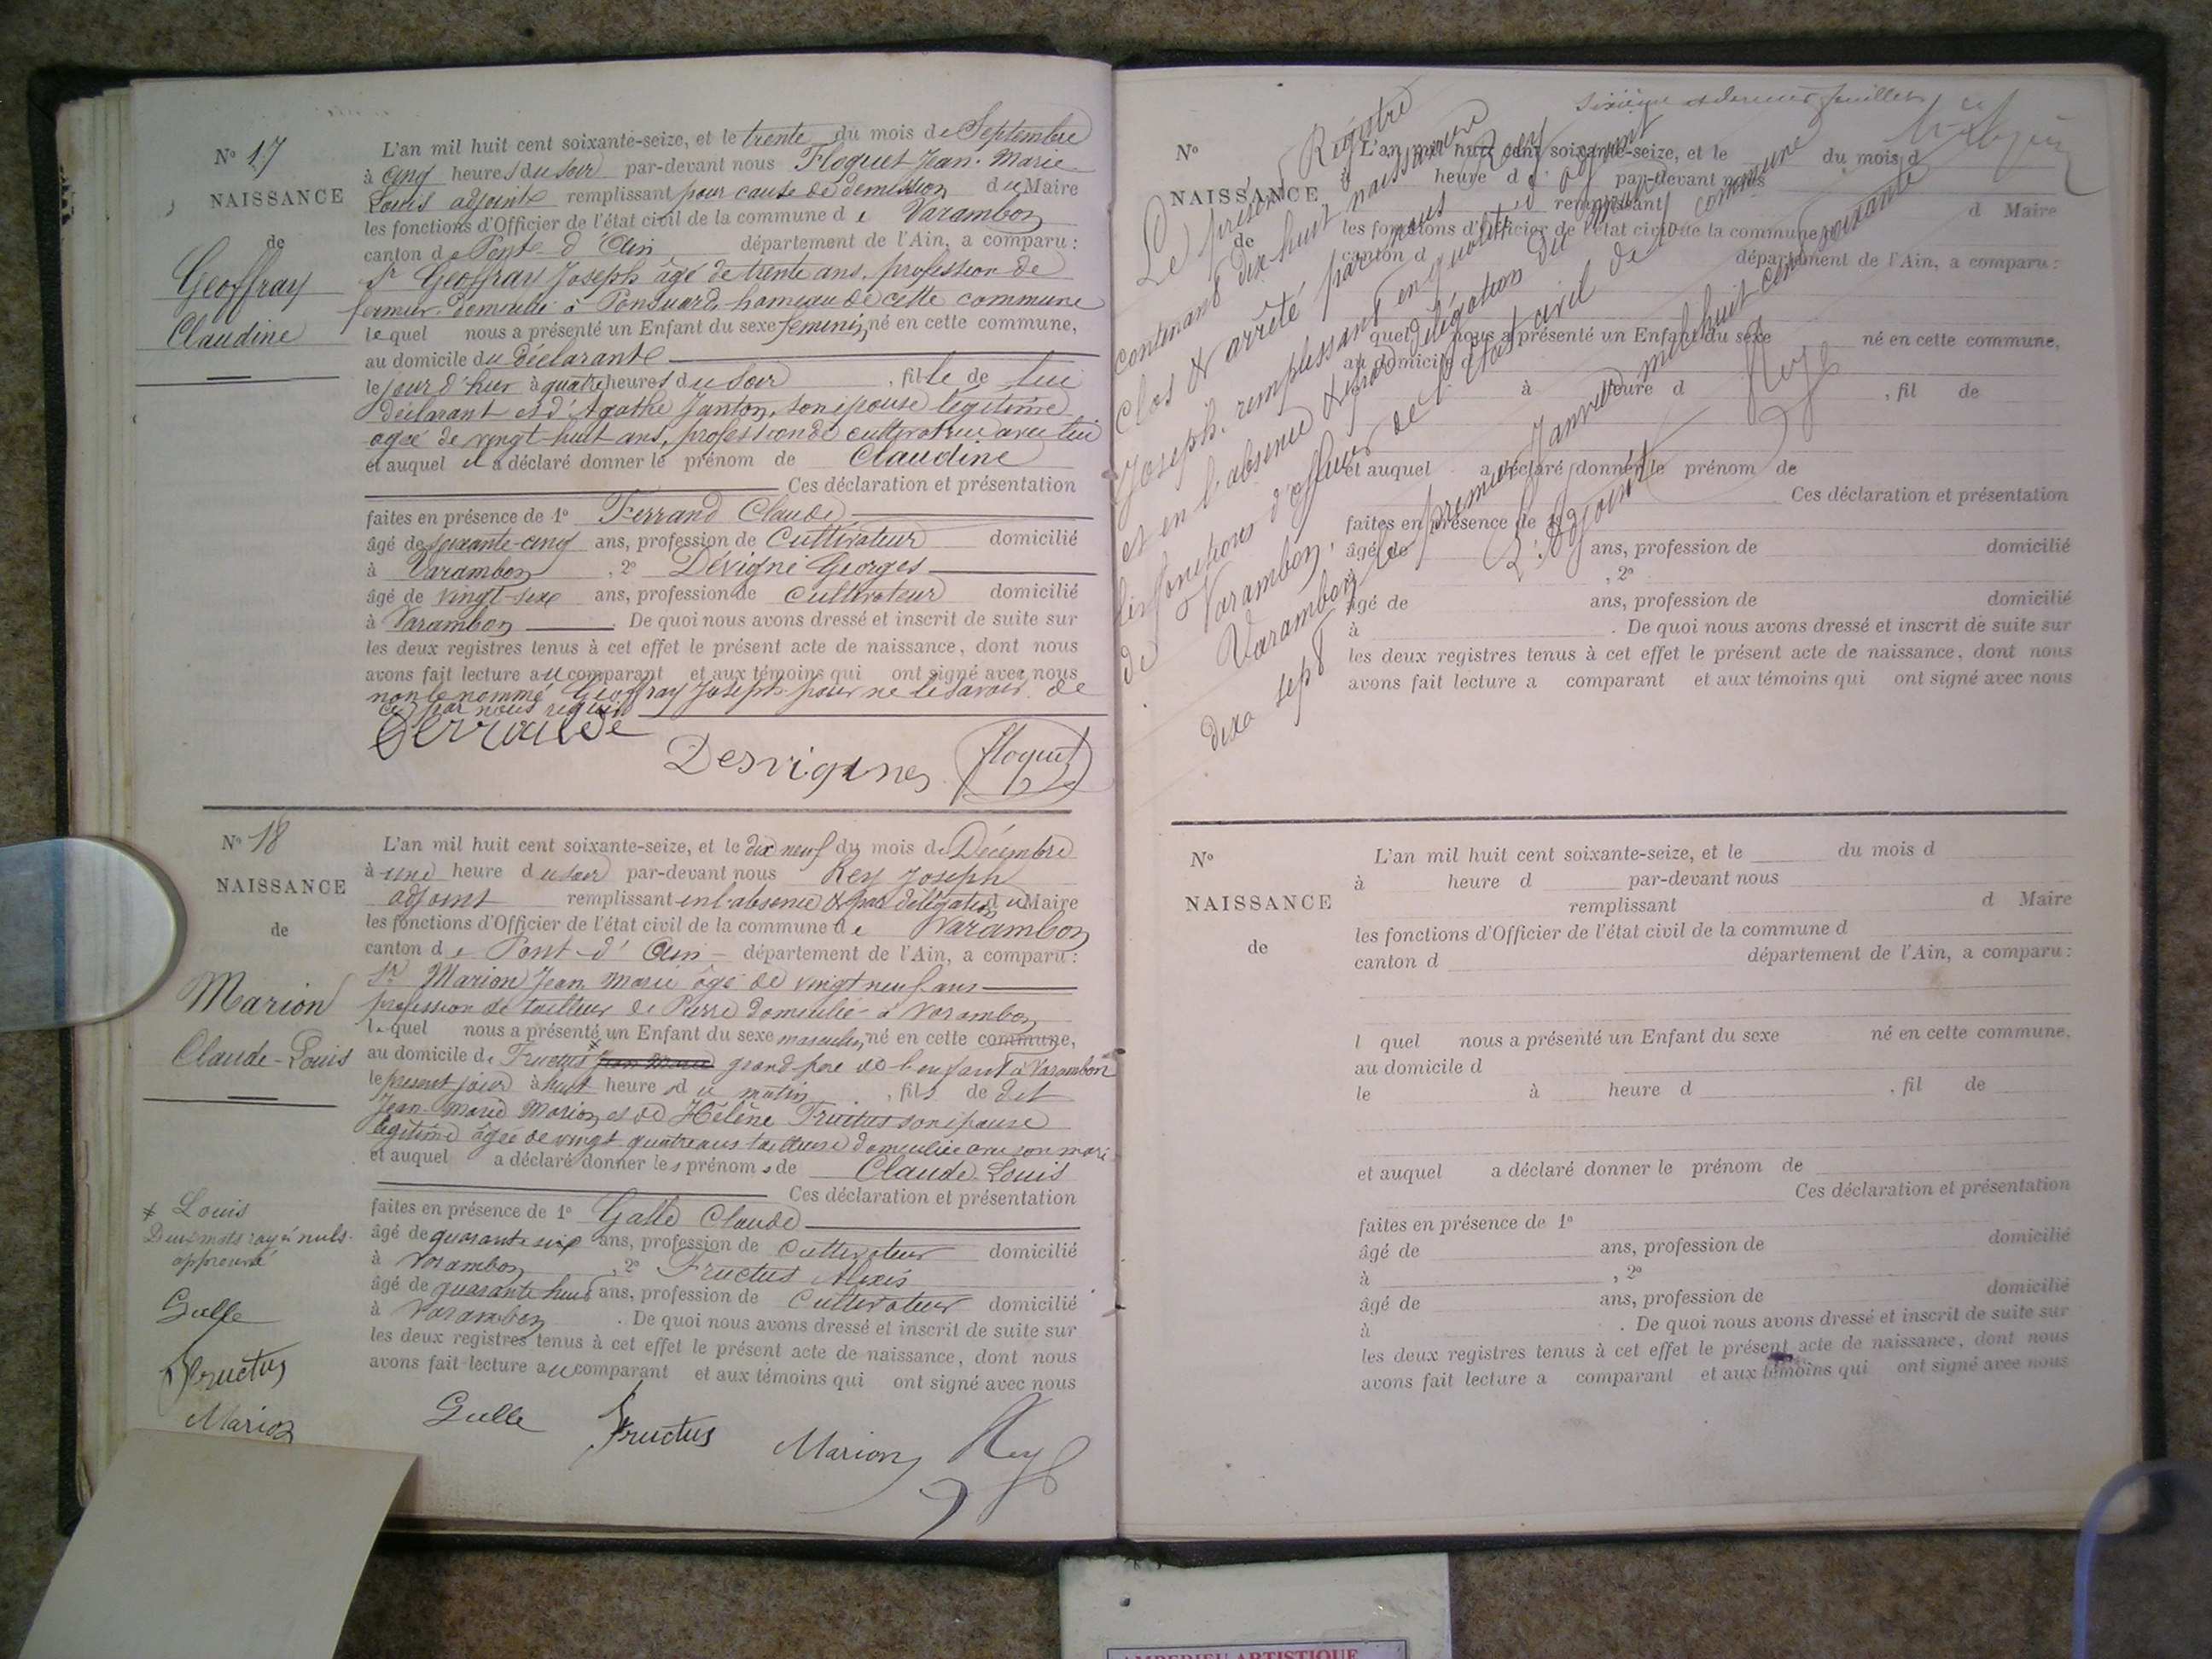 N° 17
NAISSANCE
de
Geoffray
Claudine
L'an mil huit cent soixante-seize, et le trente du mois de Septembre
à cinq heures du soir par-devant nous Floquet Jean-Marie
Louis adjoint remplissant pour cause de démission du Maire
les fonctions d'Officier de l'état civil de la commune de Varambon
canton de Pont-d'Ain département de l'Ain, a comparu :
Sr Geoffray Joseph âgé de trente ans, profession de
fermier demeurant à Ponsuard hameau de cette commune
lequel nous a présenté un Enfant du sexe féminin, né en cette commune,
au domicile du déclarant
le jour d'hier à quatre heures du soir, fille de lui
déclarant et d'Agathe Janton, son épouse légitime
agée de vingt-huit ans, profession de cultivatrice avec lui
et auquel il a déclaré donner le prénom de Claudine
Ces déclaration et présentation
faites en présence de 1° Ferrand Claude
âgé de soixante-cinq ans, profession de Cultivateur domicilié
à Varambon, 2° Dévigne Georges
âgé de vingt-six ans, profession de Cultivateur domicilié
à Varambon. De quoi nous avons dressé et inscrit de suite sur
les deux registres tenus à cet effet le présent acte de naissance, dont nous
avons fait lecture au comparant et aux témoins qui ont signé avec nous
non le nommé Geoffray Joseph pour ne le savoir de
ce par nous requis
Desvignes Floquet
N° 18
NAISSANCE
de
Marion
Claude-Louis
L'an mil huit cent soixante-seize, et le dix neuf du mois de Décembre
à une heure du soir par-devant nous Rey Joseph
adjoint remplissant en l'absence & par délégation du Maire
les fonctions d'Officier de l'état civil de la commune de Varambon
canton de Pont-d'Ain département de l'Ain, a comparu :
Sr Marion Jean Marie âgé de vingt neuf ans
profession de tailleur de Pierre domicilié à Varambon
lequel nous a présenté un Enfant du sexe masculin, né en cette commune,
au domicile de Fructus * Jean Marie grand père de l'enfant à Varambon
le présent jour à huit heures du matin, fils de dit
Jean-Marie Marion et de Hélène Fructus son épouse
légitime âgée de vingt quatre ans tailleuse domiciliée avec son mari
et auquel a déclaré donner les prénoms de Claude-Louis
Ces déclaration et présentation
faites en présence de 1° Galle Claude
âgé de quarante six ans, profession de Cultivateur domicilié
à Varambon, 2° Fructus Alexis
âgé de quarante huit ans, profession de Cultivateur domicilié
à Varambon. De quoi nous avons dressé et inscrit de suite sur
les deux registres tenus à cet effet le présent acte de naissance, dont nous
avons fait lecture au comparant et aux témoins qui ont signé avec nous
* Louis
Deux mots rayés nuls
approuvé
Galle
Fructus
Marion
Galle Fructus Marion Rey
sixième et dernier feuillet
Le présent Registre
contenant dix-huit naissances
clos & arrêté par nous Rey
Joseph, remplissant en qualité d'adjoint
et en l'absence & par délégation du maire
les fonctions d'officier de l'état civil de la commune
de Varambon.
Varambon le premier Janvier mil huit cent soixante
dix sept
L'Adjoint
Rey
N°
NAISSANCE
de
L'an mil huit cent soixante-seize, et le du mois d
à heure d par-devant nous
remplissant d Maire
les fonctions d'Officier de l'état civil de la commune d
canton d département de l'Ain, a comparu :
l quel nous a présenté un Enfant du sexe né en cette commune,
au domicile d
le à heure d , fil de
et auquel a déclaré donner le prénom de
Ces déclaration et présentation
faites en présence de 1°
âgé de ans, profession de domicilié
à , 2°
âgé de ans, profession de domicilié
à . De quoi nous avons dressé et inscrit de suite sur
les deux registres tenus à cet effet le présent acte de naissance, dont nous
avons fait lecture a comparant et aux témoins qui ont signé avec nous
N°
NAISSANCE
de
L'an mil huit cent soixante-seize, et le du mois d
à heure d par-devant nous
remplissant d Maire
les fonctions d'Officier de l'état civil de la commune d
canton d département de l'Ain, a comparu :
l quel nous a présenté un Enfant du sexe né en cette commune,
au domicile d
le à heure d , fil de
et auquel a déclaré donner le prénom de
Ces déclaration et présentation
faites en présence de 1°
âgé de ans, profession de domicilié
à , 2°
âgé de ans, profession de domicilié
à . De quoi nous avons dressé et inscrit de suite sur
les deux registres tenus à cet effet le présent acte de naissance, dont nous
avons fait lecture a comparant et aux témoins qui ont signé avec nous